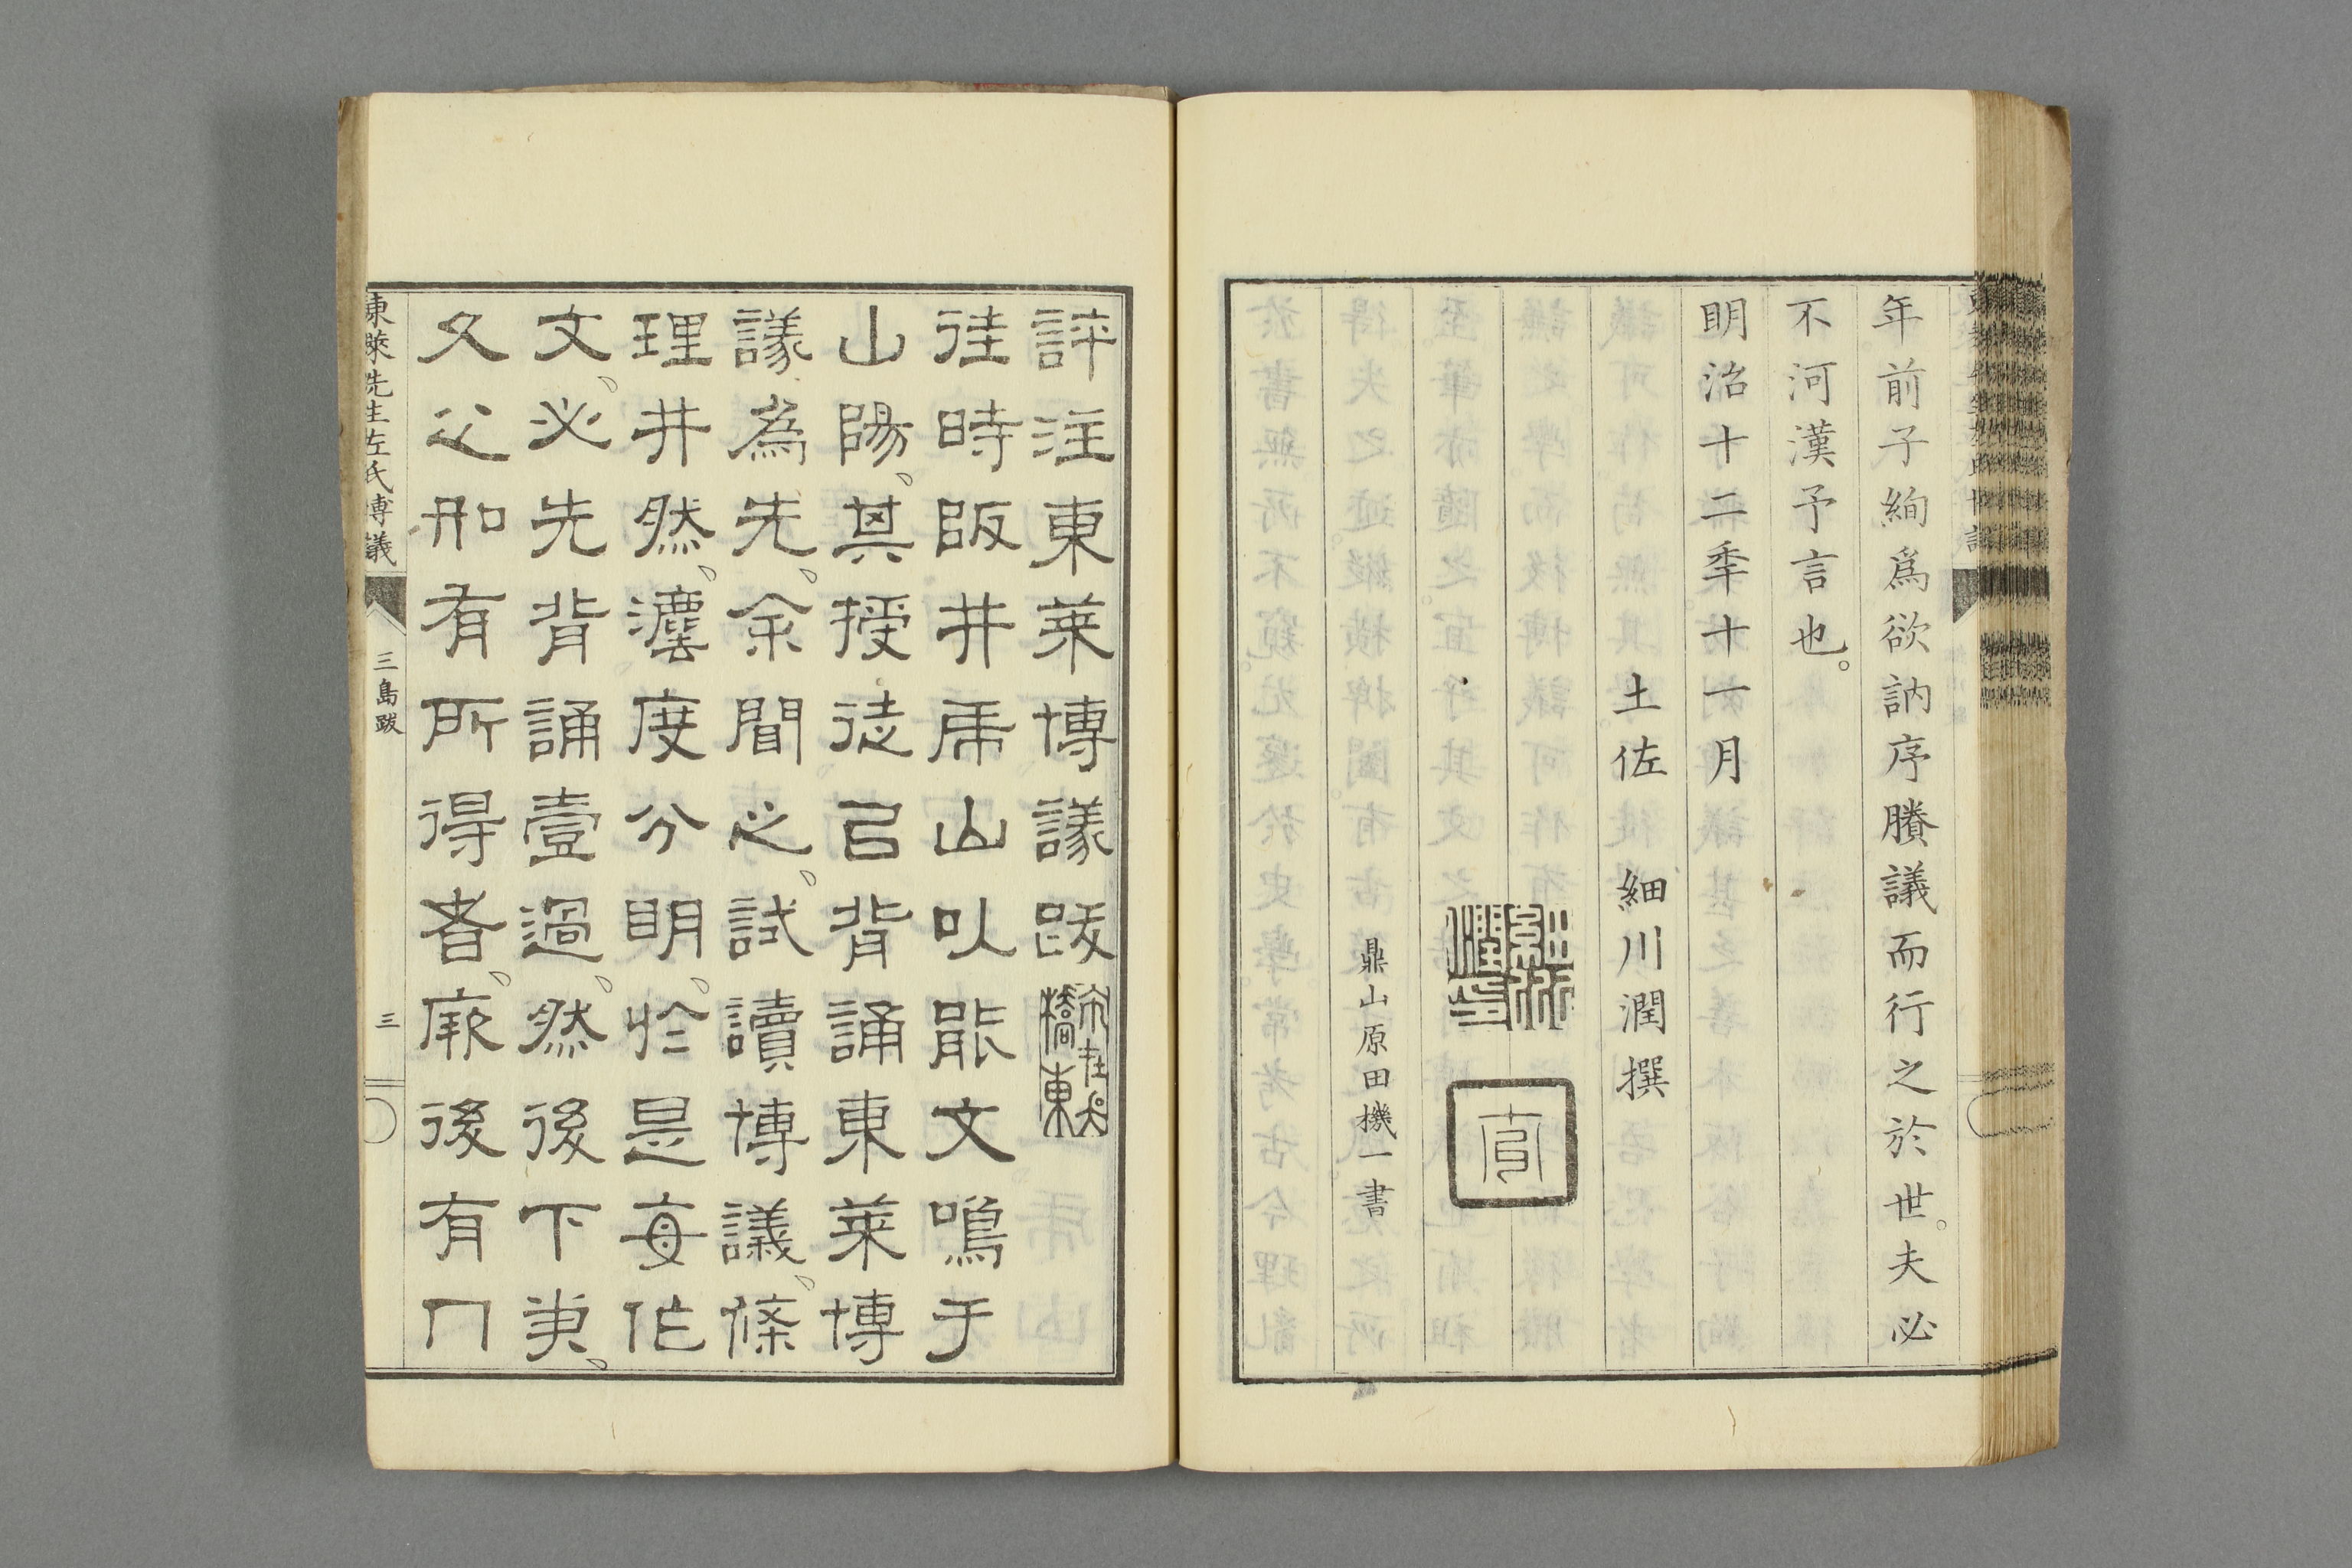 年前子絢爲欲訥序賸議而行之於世。夫必
不河漢予言也。
明治十二季十一月
土佐　細川潤撰
鼎山原田機一書
評注東萊博議跋
往時阪井虎山以能文鳴于
山陽、其授徒㠯背誦東萊博
議為先、余聞之、試讀博議、條
理井然、灋度分明、於是每作
文、必先背誦壹過、然後下筆、
久之如有所得者、厥後有門
東萊先生左氏博議　三島跋　三